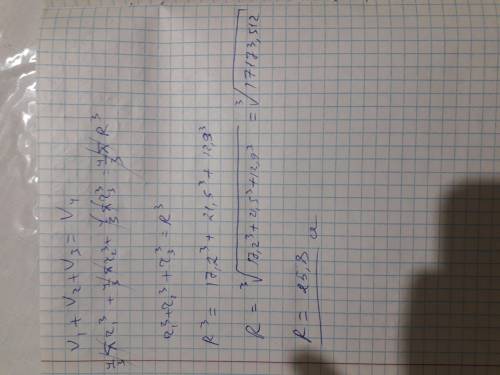 V₁ + V₂ + V₃ = V₄
4/3 π r₁³ + 4/3 π r₂³ + 4/3 π r₃³ = 4/3 π R³
r₁³ + r₂³ + r₃³ = R³
R³ = 17,2³ + 21,5³ + 12,9³
R = ∛(17,2³ + 21,5³ + 12,9³) = ∛17173,512
R = 25,8